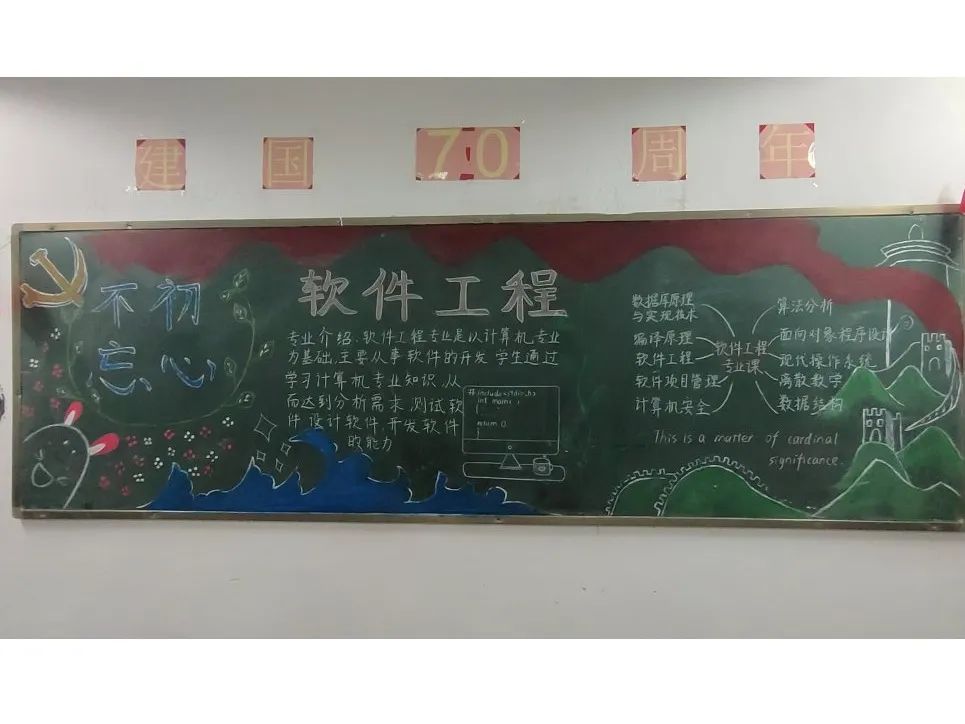 建国70周年
不初
忘心
软件工程
专业介绍:软件工程专业是以计算机专业
为基础,主要从事软件的开发 学生通过
学习计算机专业知识,从
而达到分析需求,测试软
件,设计软件,开发软件
的能力
#include<stdio.h>
int main
{
return 0
}
数据库原理
与实现技术
编译原理
软件工程
软件项目管理
计算机安全
软件工程
专业课
算法分析
面向对象程序设计
现代操作系统
离散数学
数据结构
This is a matter of cardinal
significance.